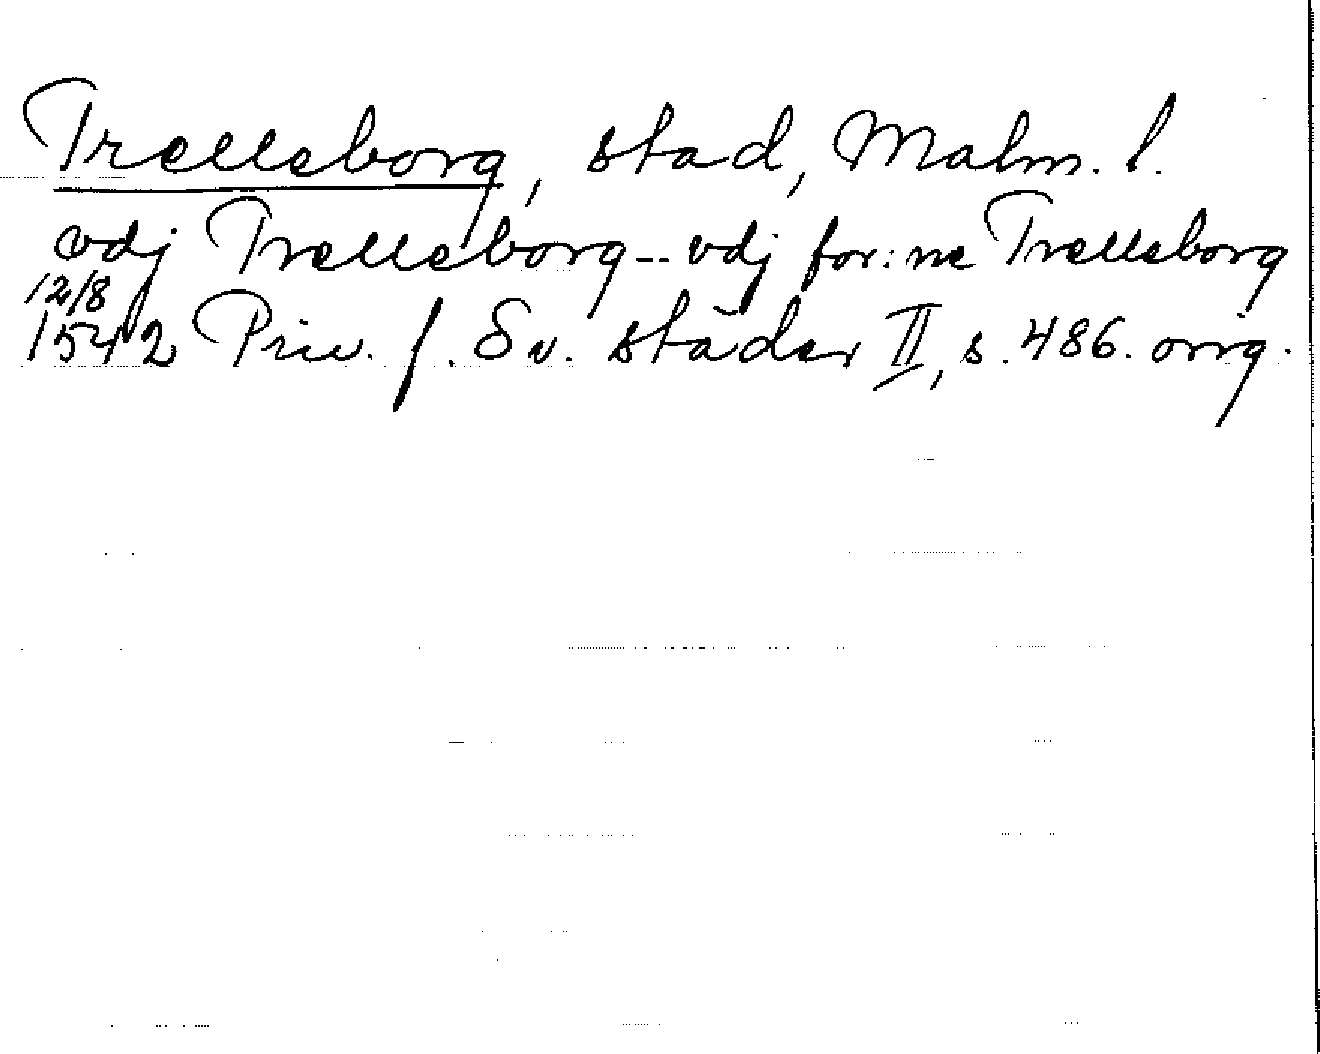 Trelleborg, stad, Malm. l.
vdj Trelleborg -- vdj for:ne Trelleborg
12/8
1542 Priv. f. Sv. städer II, s. 486. orig.